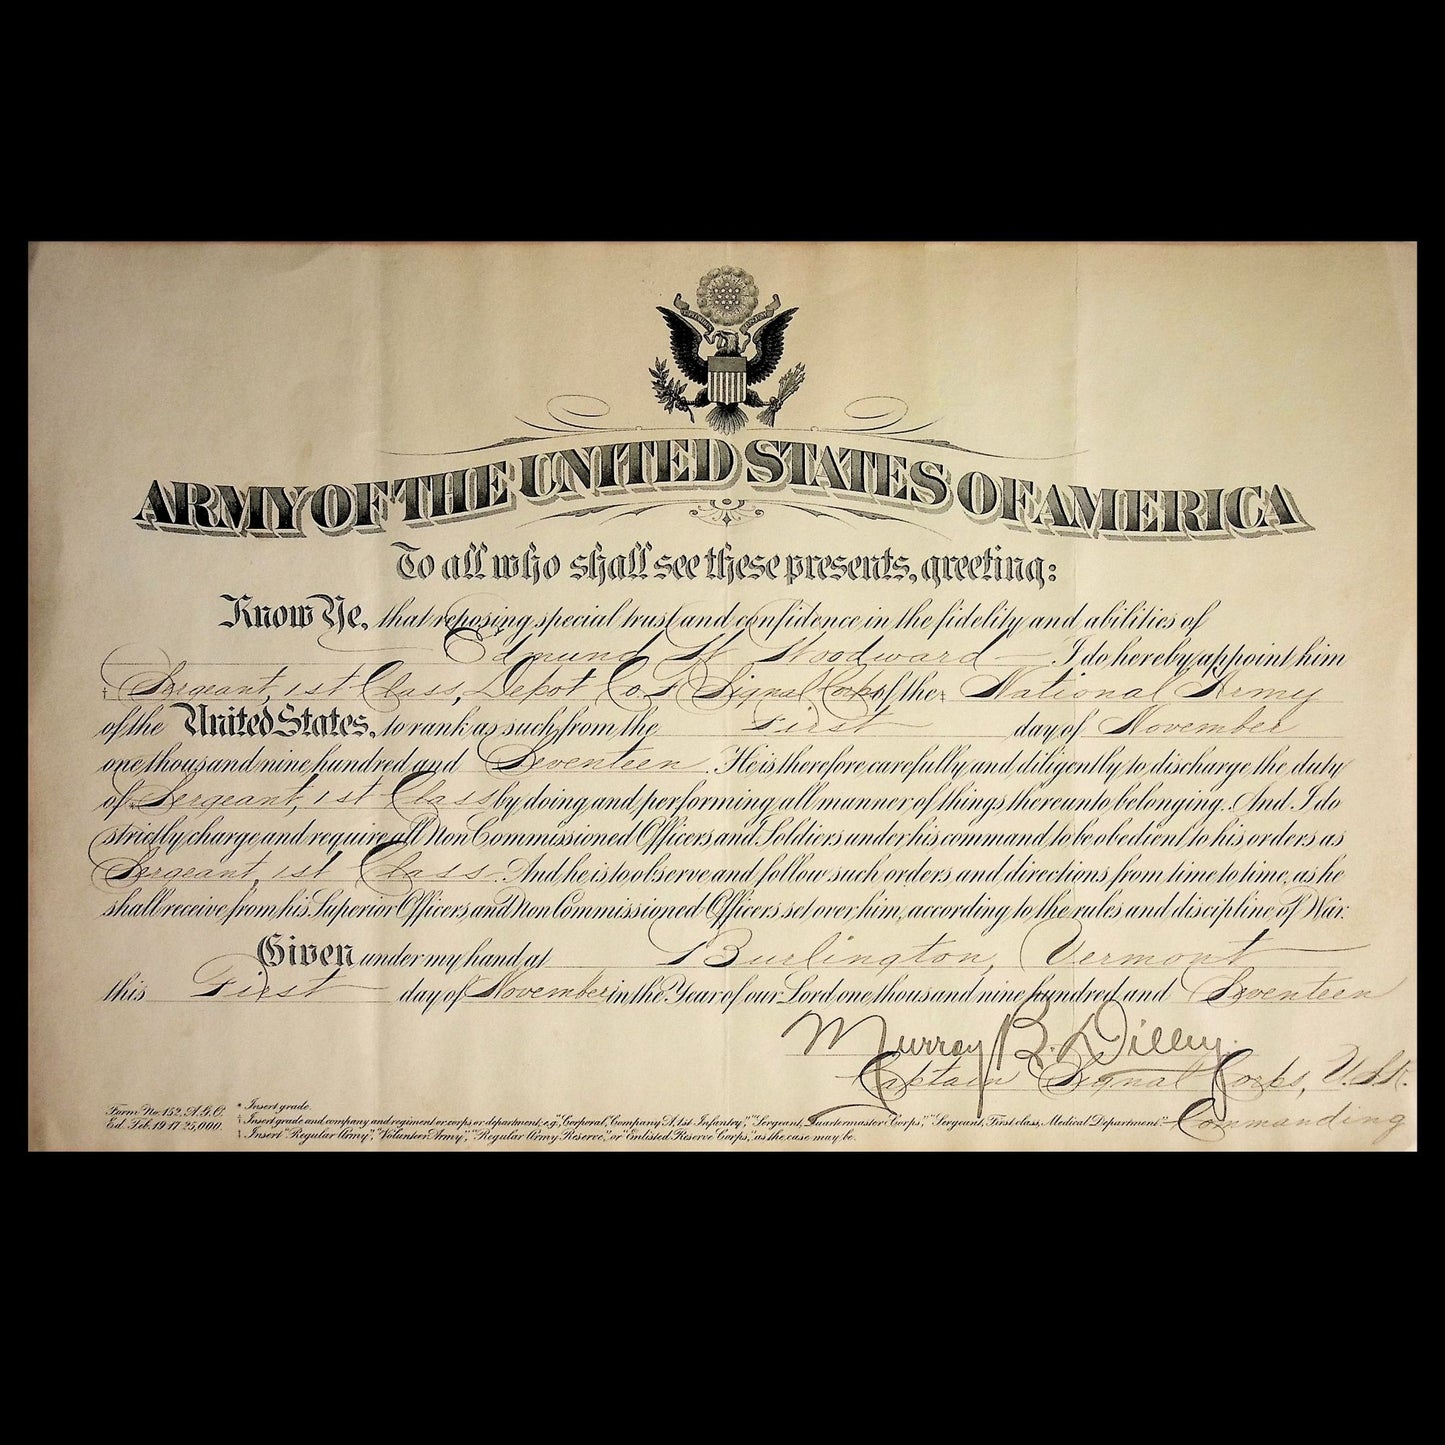 ARMY OF THE UNITED STATES OF AMERICA
To all who shall see these presents, greeting:
Know Ye, that reposing special trust and confidence in the fidelity and abilities of
Edmund H Woodward I do hereby appoint him
† Sergeant, 1st Class, Depot Co. F Signal Corps of the ‡ National Army
of the United States, to rank as such from the First day of November
one thousand nine hundred and Seventeen. He is therefore carefully and diligently to discharge the duty
of * Sergeant, 1st Class by doing and performing all manner of things thereunto belonging. And I do
strictly charge and require all Non Commissioned Officers and Soldiers under his command, to be obedient to his orders as
Sergeant, 1st Class. And he is to observe and follow such orders and directions from time to time, as he
shall receive from his Superior Officers and Non Commissioned Officers set over him, according to the rules and discipline of War.
Given under my hand at Burlington, Vermont
this First day of November in the Year of our Lord one thousand nine hundred and Seventeen
Murray B. Dilley.
Captain Signal Corps, U.S.R.
Commanding
Form No. 152, A.G.O.
Ed. Feb. 19-17-25,000.
* Insert grade.
† Insert grade and company and regiment or corps or department, e.g., "Corporal, Company A, 1st Infantry," "Sergeant, Quartermaster Corps," "Sergeant, First class, Medical Department."
‡ Insert "Regular Army," "Volunteer Army," "Regular Army Reserve," or "Enlisted Reserve Corps," as the case may be.